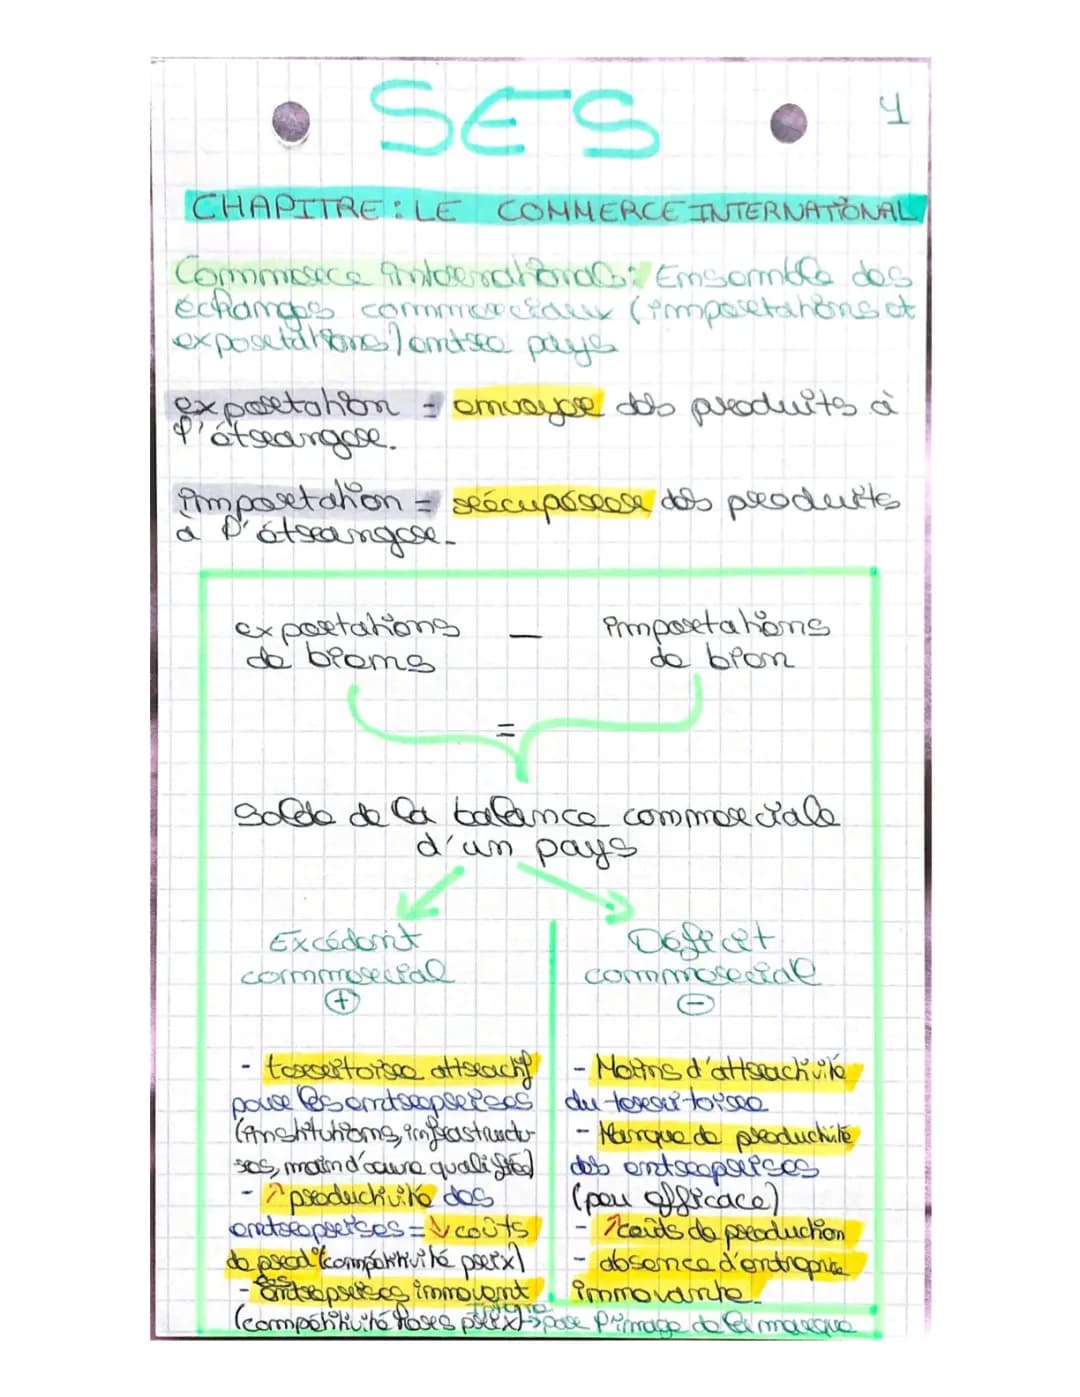 SES
1
CHAPITRE : LE COMMERCE INTERNATIONAL
Commerce international : Ensemble des
échanges commerciaux (importations et
exportations) entre pays
exportation = envoyer des produits à
l'étranger.
Importation = récupérer des produits
à l'étranger.
exportations - importations
de biens de bien
=
Solde de la balance commerciale
d'un pays
Excédent
commercial
+
- territoire attractif
pour les entreprises
(institutions, infrastructu-
res, main d'œuvre qualifiée)
- ↗ productivité des
entreprises = ↓ coûts
de prod° (compétitivité prix)
- des entreprises innovent
(compétitivité hors prix) → par l'image de la marque
Déficit
commercial
-
- Moins d'attractivité
du territoire
- Manque de productivité
des entreprises
(peu efficace)
- ↗ coûts de production
- absence d'entreprise
innovante.